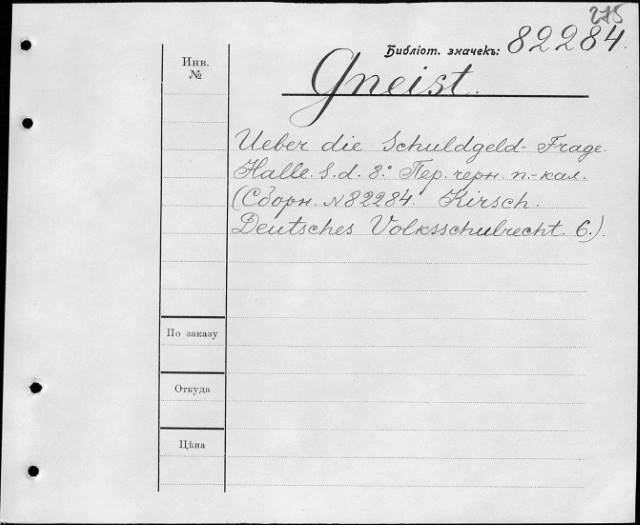 275
Библіот. значекъ: 82284.
Инв.
№
Gneist.
Ueber die Schuldgeld-Frage.
Halle. S. d. 8.° Пер. черн. п.-кал.
(Сборн. №82284. Kirsch.
Deutsches Volksschulrecht. 6.).
По заказу
Откуда
Цѣна